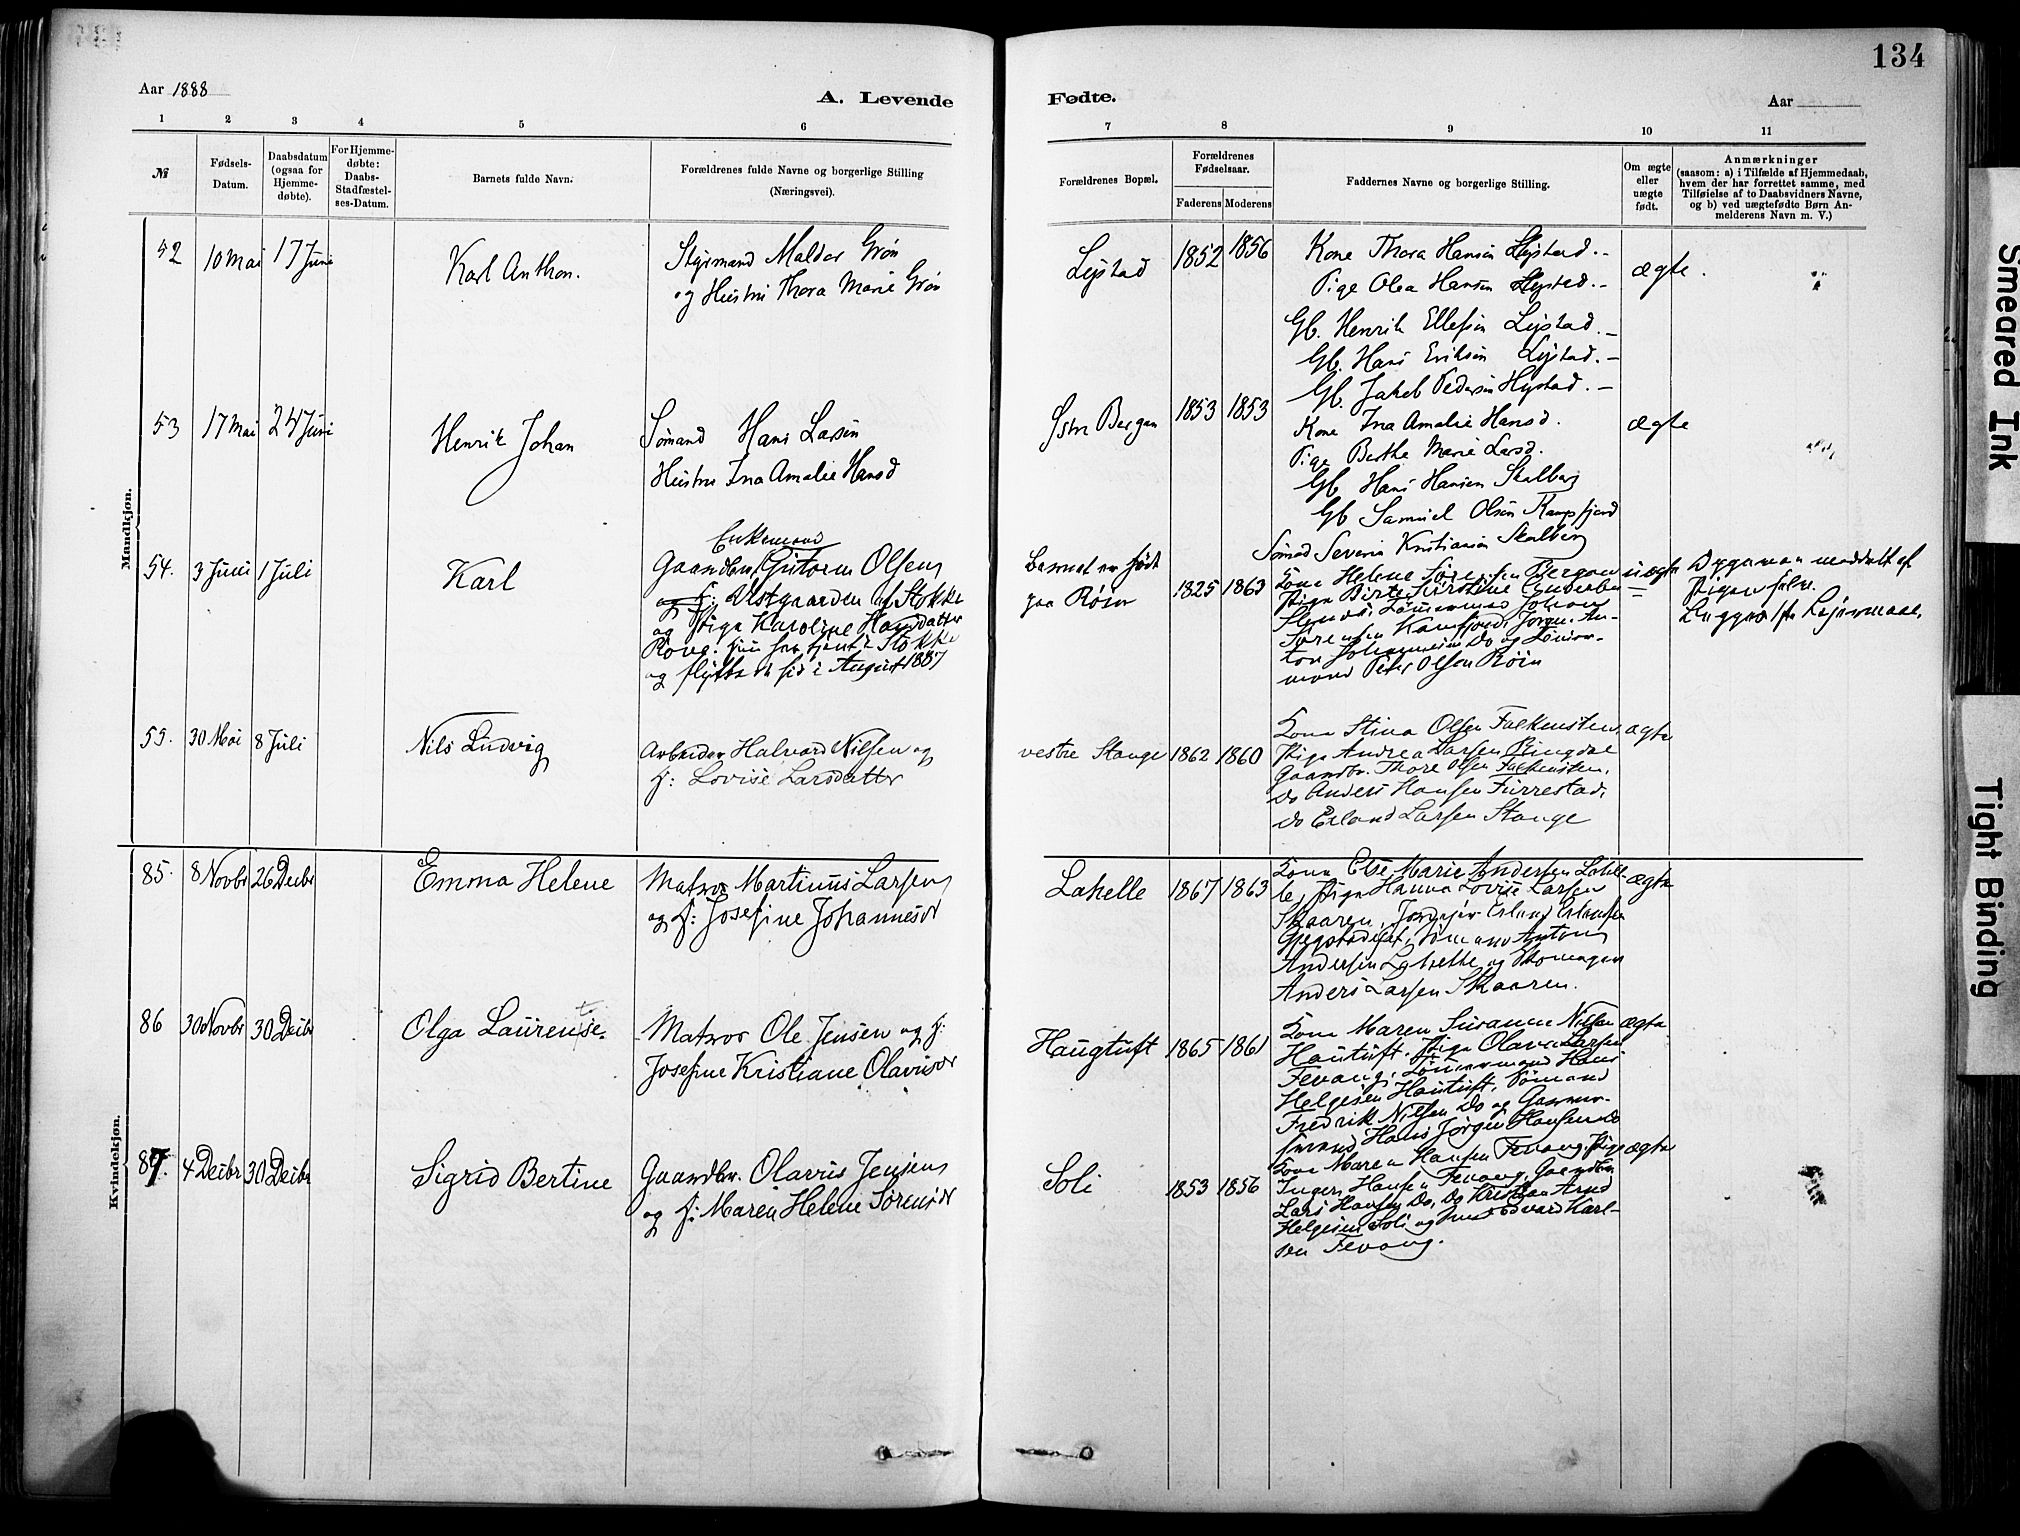 134
Aar 1888
A. Levende
Fødte.
Aar
1 2 3 4 5 6 7 8 9 10 11
№
Fødsels-
Datum.
Daabsdatum
(ogsaa for
Hjemme-
døbte).
For Hjemme-
døbte:
Daabs-
Stadfæstel-
ses-Datum.
Barnets fulde Navn.
Forældrenes fulde Navne og borgerlige Stilling
(Næringsvei).
Forældrenes Bopæl.
Forældrenes
Fødselsaar.
Faderens Moderens
Faddernes Navne og borgerlige Stilling.
Om ægte
eller
uægte
født.
Anmærkninger
(saasom: a) i Tilfælde af Hjemmedaab,
hvem der har forrettet samme, med
Tilføielse af to Daabsvidners Navne,
og b) ved uægtefødte Børn An-
melderens Navn m. V.)
Mandkjøn.
52 10 Mai 17 Juni
Karl Anthon.
Styrmand Maldor Grøn
og Hustru Thora Marie Grøn
1852 1856
Kone Thora Hansen
Pige Olea Hansen
Gb. Henrik Ellefsen
Gb. Hans Eriksen
Gb. Jakob Pedersen
ægte.
53 17 Mai 24 Juni
Henrik Johan
Sømand Hans Larsen
Hustru Ina Amalie Hansd
Bergan
1853 1853
Kone Ina Amalie Hansd.
Pige Berthe Marie Larsd.
Gb Hans Hansen Skalberg
Gb Samuel Olsen
Sømd Severin Kristiansen Skalberg
ægte
54. 3 Juni 1 Juli
Karl
Enkemand
Gaardbr. Gutorm Olsen
Vestgaarden af Stokke
og Pige Karoline Hansdatter
Røve. hun har tjent i Stokke
og flyttet did i August 1887
Barnet er født
paa Røsn
1825 1863
Kone Helene Sørensen Bergan
Sørensen
mand Peter Olsen
uægte
Pigen selv.
55. 30 Mai 8 Juli
Nils Ludvig
Arbeider Halvard Nilsen og
H: Lovise Larsdatter
vestre Stange
1862 1860
Kone Stina Olsen Falkensten,
Pige Andrea Larsen Ringdal
Gaardbr. Thore Olsen Falkensten,
Do Anders Hansen Furrestad,
Do Erland Larsen Stange
ægte
Kvindekjøn.
85. 8 Novbr 26 Decbr
Emma Helene
Matros Martinus Larsen
og H: Josefine Johannesdr
Lahelle
1867 1863
Kone Else Marie Andersen Lahel-
le, Pige Hanna Lovise Larsen
Skaaren, Erland Erlandsen
Sømand Anton
Andersen Lahelle og
Anders Larsen Skaaren.
ægte
86 30 Novbr 30 Decbr
Olga Laurense.
Matros Ole Jensen og H:
Josefine Kristiane Olavusdr
Haugtuft
1865 1861
Kone Maren Susanne Nilsen
Hautuft. Pige Olava Larsen
Fevang, Tømmermand Hans
Helgesen Hautuft, Sømand
Fredrik Nilsen Do og
Hans Jørgen Hansen Do
ægte
87. 4 Decbr 30 Decbr
Sigrid Bertine
Gaardbr. Olavus Jensen
og H: Maren Helene Sørensdr
Soli
1853 1856
Kone Maren Hansen Fevang, Pige
Inger Hansen Fevang, Gaardbr
Lars Hansen Do, Do Kristian Arnd
Helgesen Soli og Edvard Karl-
sen Fevang.
ægte
Smeared Ink
Tight Binding